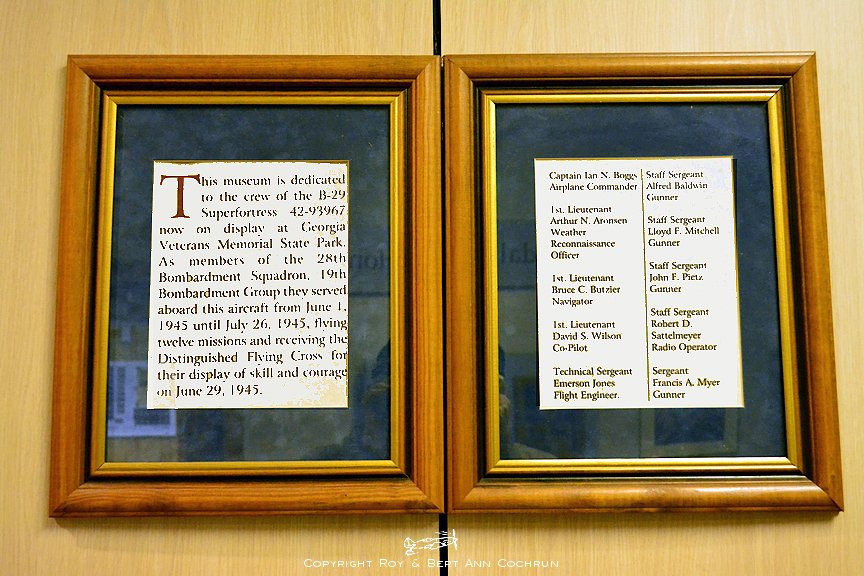 This museum is dedicated
to the crew of the B-29
Superfortress 42-93967
now on display at Georgia
Veterans Memorial State Park.
As members of the 28th
Bombardment Squadron, 19th
Bombardment Group they served
aboard this aircraft from June 1,
1945 until July 26, 1945, flying
twelve missions and receiving the
Distinguished Flying Cross for
their display of skill and courage
on June 29, 1945.
Captain Ian N. Boggs
Airplane Commander
1st. Lieutenant
Arthur N. Aronsen
Weather
Reconnaissance
Officer
1st. Lieutenant
Bruce C. Butzier
Navigator
1st. Lieutenant
David S. Wilson
Co-Pilot
Technical Sergeant
Emerson Jones
Flight Engineer.
Staff Sergeant
Alfred Baldwin
Gunner
Staff Sergeant
Lloyd F. Mitchell
Gunner
Staff Sergeant
John F. Pietz
Gunner
Staff Sergeant
Robert D.
Sattelmeyer
Radio Operator
Sergeant
Francis A. Myer
Gunner
Copyright Roy & Bert Ann Cochrun